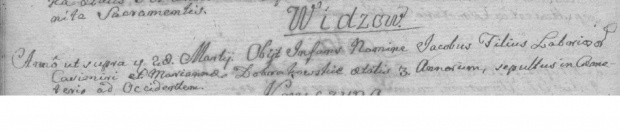 nita Sacramentis.
Widzow
Anno ut supra 28. Martij. Obijt Infans Nomine Jacobus Filius Laborios
Casimiri et Mariannæ ætatis 3 Annorum, sepultus in Cæme-
terio ad Occidentem.